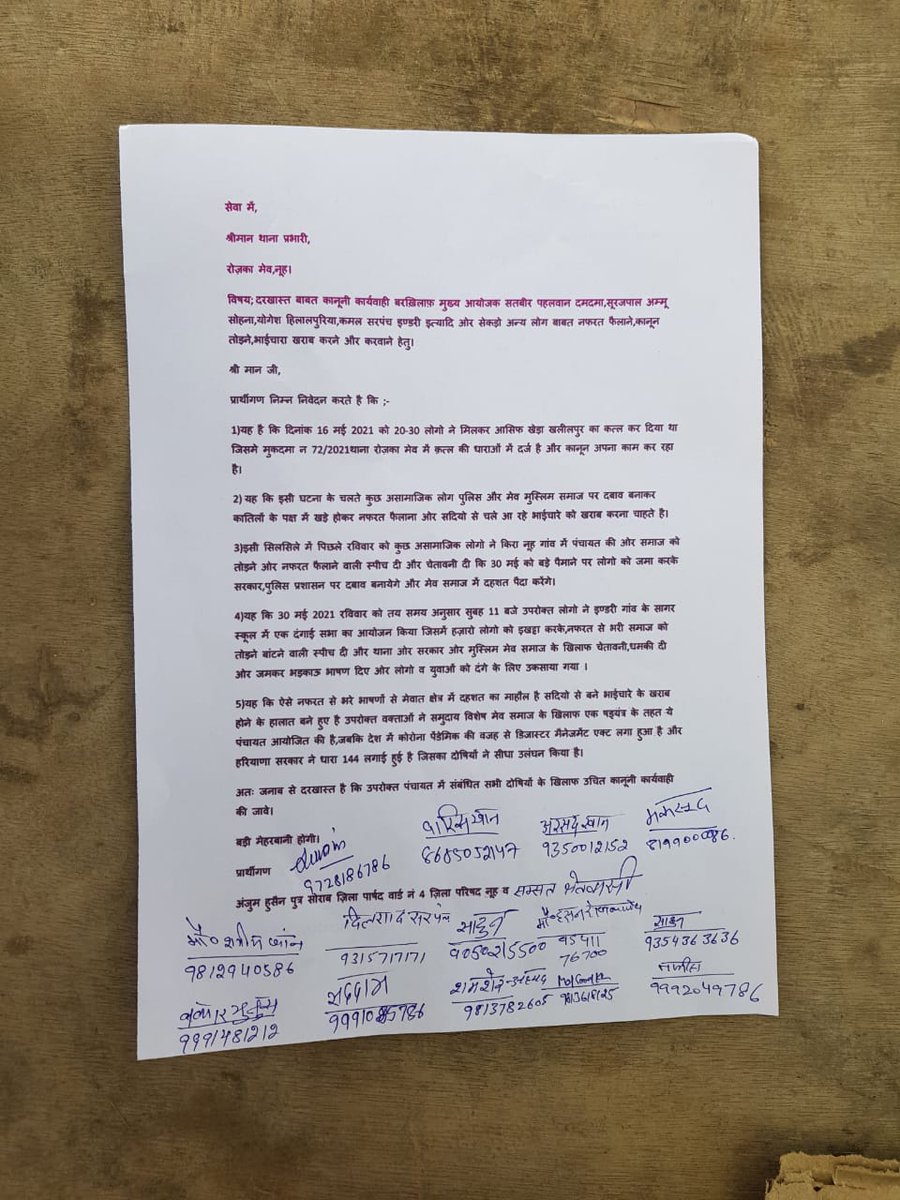 सेवा में,
श्रीमान थाना प्रभारी,
रोज़का मेव,नूह।
विषय; दरखास्त बाबत कानूनी कार्यवाही बरख़िलाफ़ मुख्य आयोजक सतबीर पहलवान दमदमा,सूरजपाल अम्मू
सोहना,योगेश हिलालपुरिया,कमल सरपंच इण्डरी इत्यादि ओर सेकड़ो अन्य लोग बाबत नफरत फैलाने,कानून
तोड़ने,भाईचारा खराब करने और करवाने हेतु।
श्री मान जी,
प्रार्थीगण निम्न निवेदन करते है कि ;-
1)यह है कि दिनांक 16 मई 2021 को 20-30 लोगो ने मिलकर आसिफ खेड़ा खलीलपुर का कत्ल कर दिया था
जिसमे मुकदमा न 72/2021थाना रोज़का मेव में क़त्ल की धाराओं में दर्ज है और कानून अपना काम कर रहा
है।
2) यह कि इसी घटना के चलते कुछ असामाजिक लोग पुलिस और मेव मुस्लिम समाज पर दबाव बनाकर
कातिलों के पक्ष में खड़े होकर नफरत फैलाना ओर सदियो से चले आ रहे भाईचारे को खराब करना चाहते है।
3)इसी सिलसिले में पिछले रविवार को कुछ असामाजिक लोगो ने किरा नूह गांव में पंचायत की ओर समाज को
तोड़ने ओर नफरत फैलाने वाली स्पीच दी और चेतावनी दी कि 30 मई को बड़े पैमाने पर लोगो को जमा करके
सरकार,पुलिस प्रशासन पर दबाव बनायेगे और मेव समाज में दहशत पैदा करेंगे।
4)यह कि 30 मई 2021 रविवार को तय समय अनुसार सुबह 11 बजे उपरोक्त लोगो ने इण्डरी गांव के सागर
स्कूल में एक दंगाई सभा का आयोजन किया जिसमें हज़ारो लोगो को इखट्ठा करके,नफरत से भरी समाज को
तोड़ने बांटने वाली स्पीच दी और थाना ओर सरकार और मुस्लिम मेव समाज के खिलाफ चेतावनी,धमकी दी
ओर जमकर भड़काऊ भाषण दिए ओर लोगो व युवाओं को दंगे के लिए उकसाया गया ।
5)यह कि ऐसे नफरत से भरे भाषणों से मेवात क्षेत्र में दहशत का माहौल है सदियो से बने भाईचारे के खराब
होने के हालात बने हुए है उपरोक्त वक्ताओं ने समुदाय विशेष मेव समाज के खिलाफ एक षड्यंत्र के तहत ये
पंचायत आयोजित की है,जबकि देश में कोरोना पैंडेमिक की वजह से डिजास्टर मैनेजमेंट एक्ट लगा हुआ है और
हरियाणा सरकार ने धारा 144 लगाई हुई है जिसका दोषियों ने सीधा उलंघन किया है।
अतः जनाब से दरखास्त है कि उपरोक्त पंचायत में संबंधित सभी दोषियों के खिलाफ उचित कानूनी कार्यवाही
की जावे।
बड़ी मेहरबानी होगी।
वारिस खान अरसद खान
8685052147 9350012152
प्रार्थीगण 9728186786
अंजुम हुसैन पुत्र सोराब ज़िला पार्षद वार्ड नं 4 ज़िला परिषद नूह व समस्त
दिलशाद सरपंच
9812940586 9315717171 9050215500 95411 76700 9354363636
सद्दाम
9991481212 9813782605 9992049786